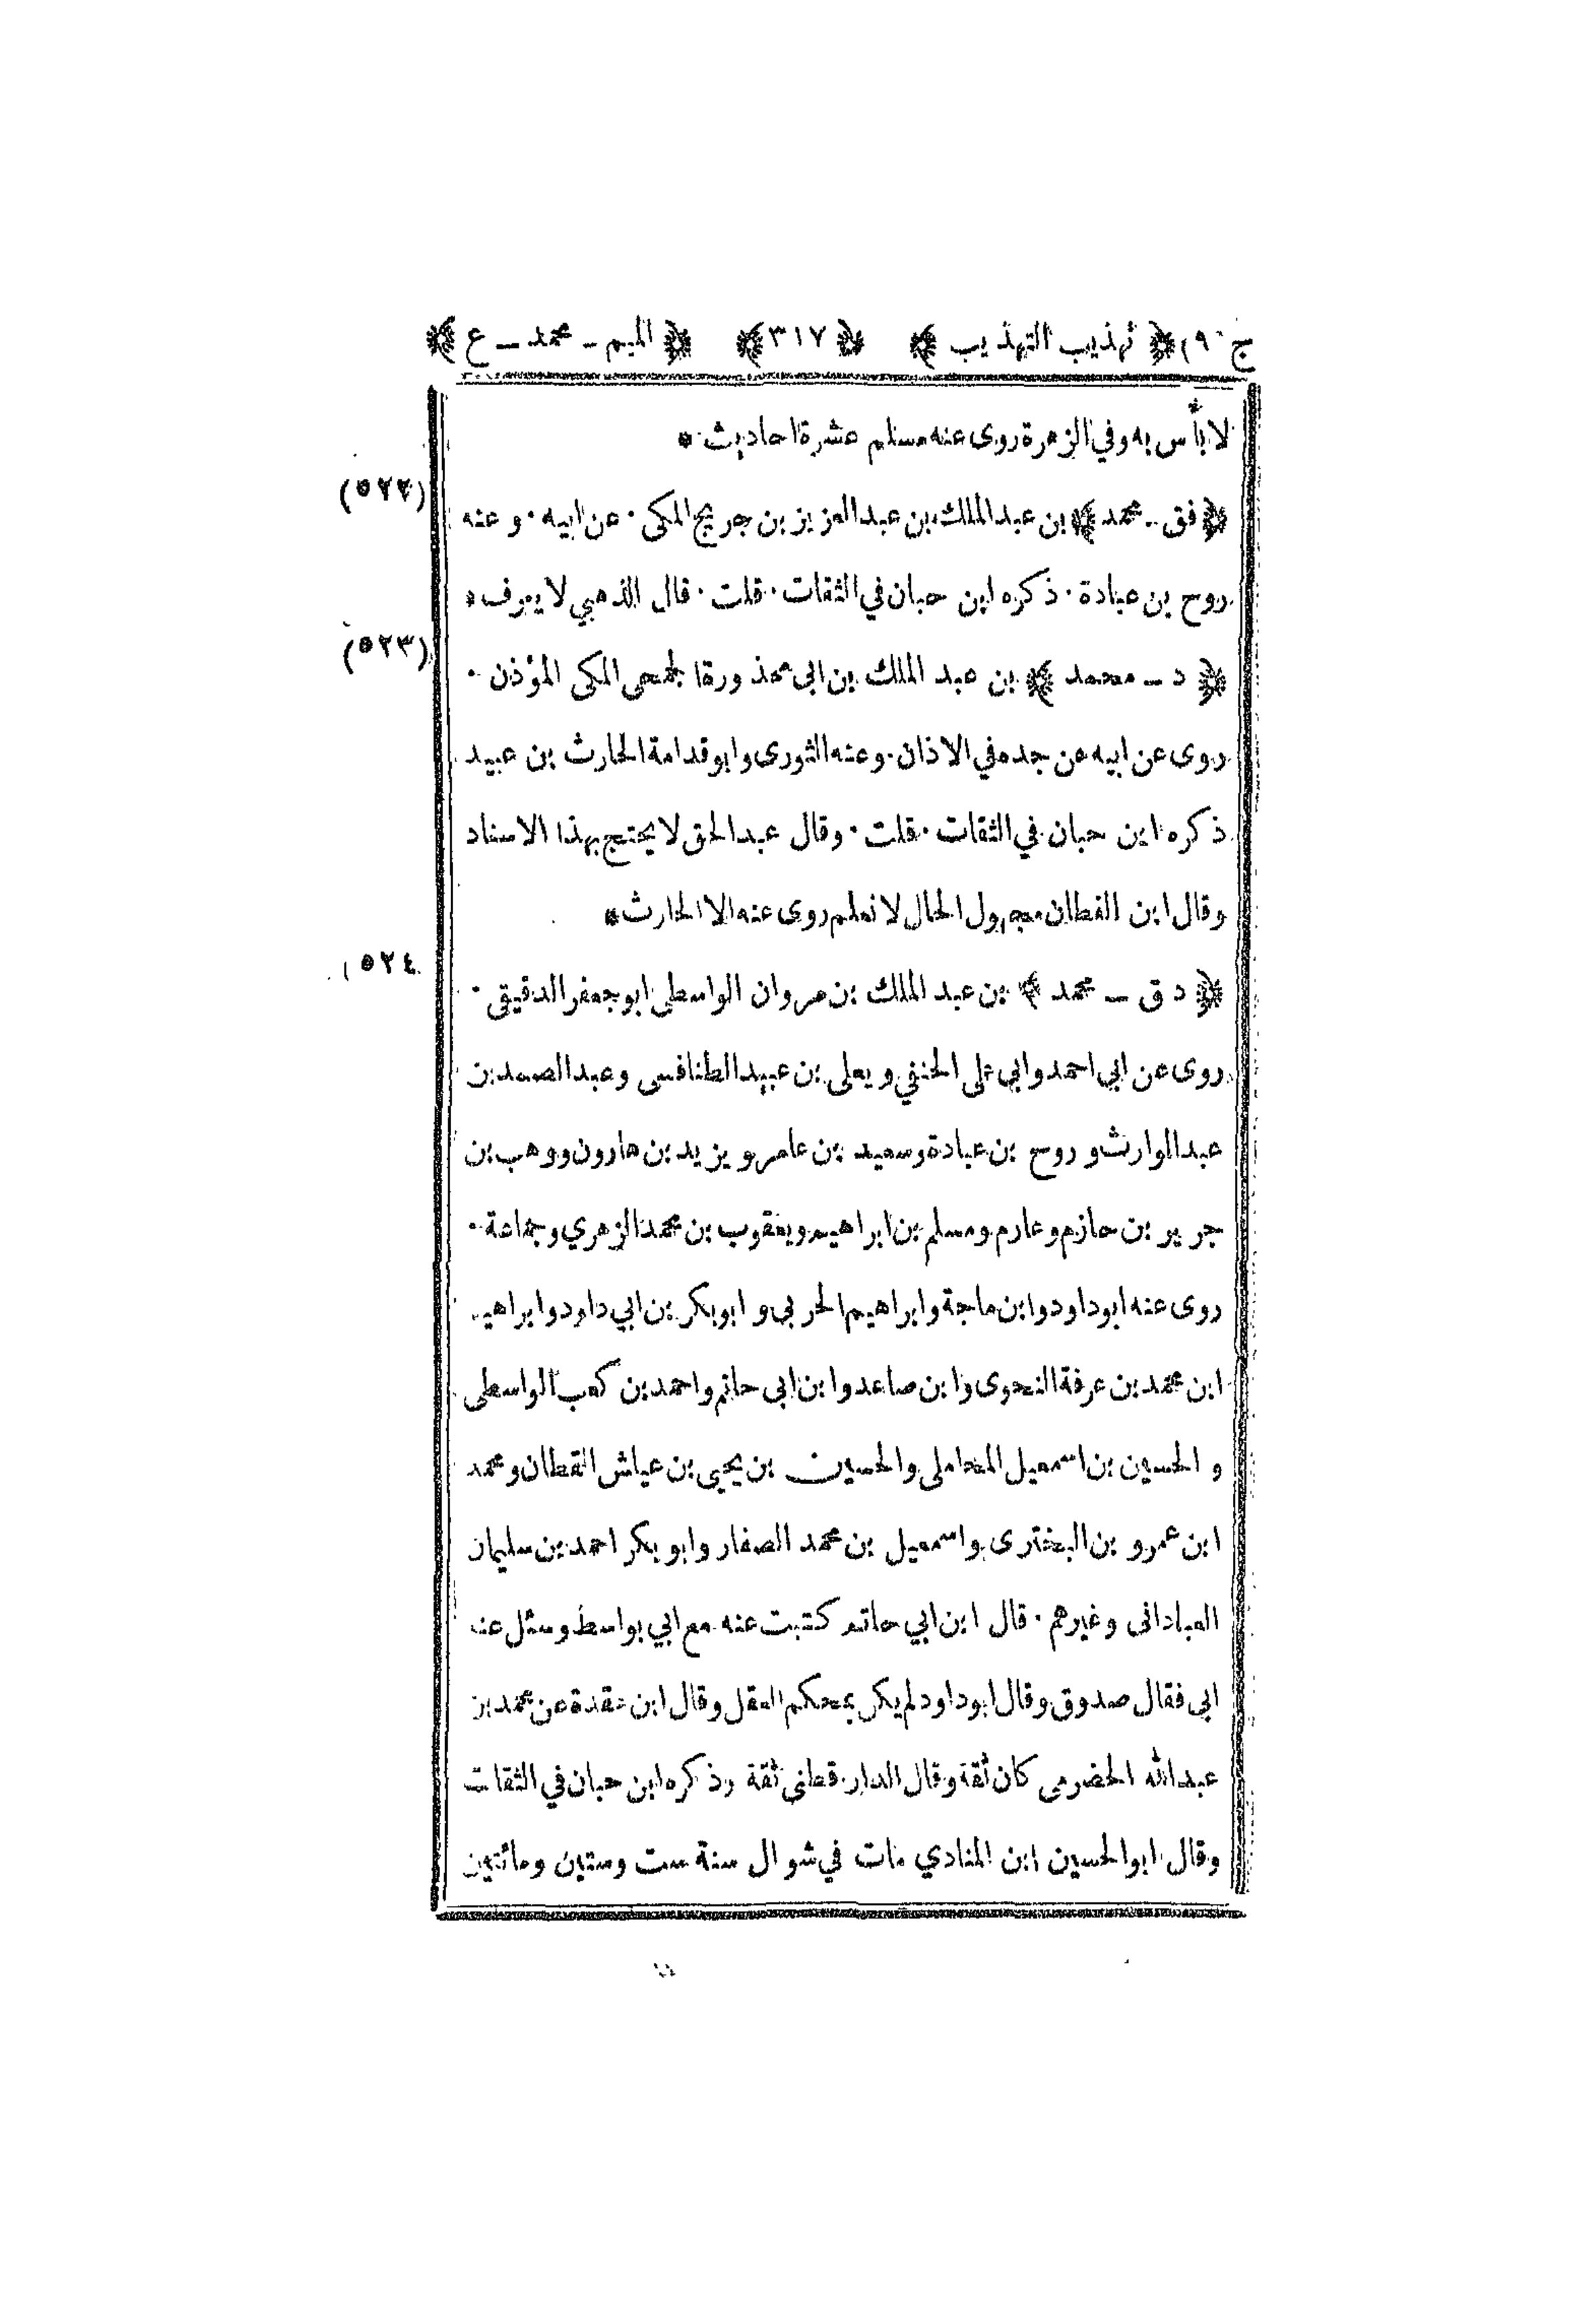 ج (٩) ﴿ تهذيب التهذيب ﴾ ﴿ ٣١٧ ﴾ ﴿ الميم ـ محمد ـ ع ﴾
لا بأس به وفي الزهرة روى عنه مسلم عشرة احاديث *
(٥٢٢)
﴿ فق ـ محمد ﴾ بن عبد الملك بن عبد العزيز بن جريج المكى ٠ عن ابيه ٠ وعنه
روح بن عبادة ٠ ذكره ابن حبان في الثقات ٠ قلت ٠ قال الذهبي لا يعرف *
(٥٢٣)
﴿ د ـ محمد ﴾ بن عبد الملك بن ابى محذورة الجمحى المكى المؤذن ٠
روى عن ابيه عن جده في الاذان ٠ وعنه الثورى وابو قدامة الحارث بن عبيد
ذكره ابن حبان في الثقات ٠ قلت ٠ وقال عبد الحق لا يحتج بهذا الاسناد
وقال ابن القطان مجهول الحال لا نعلم روى عنه الا الحارث *
(٥٢٤
﴿ د ق ـ محمد ﴾ بن عبد الملك بن مروان الواسطى ابو جعفر الدقيقى ٠
روى عن ابي احمد وابي على الحنفي ويعلى بن عبيد الطنافسى وعبد الصمد بن
عبد الوارث وروح بن عبادة وسعيد بن عامر ويزيد بن هارون ووهب بن
جرير بن حازم وعارم ومسلم بن ابراهيم ويعقوب بن محمد الزهري وجماعة ٠
روى عنه ابو داود وابن ماجة وابراهيم الحربي وابو بكر بن ابي داود وابراهيم
ابن محمد بن عرفة النحوى وابن صاعد وابن ابى حاتم واحمد بن كعب الواسطى
والحسين بن اسمعيل المحاملى والحسين بن يحيى بن عياش القطان ومحمد
ابن عمرو بن البخترى واسمعيل بن محمد الصفار وابو بكر احمد بن سليمان
العبادانى وغيرهم ٠ قال ابن ابي حاتم كتبت عنه مع ابي بواسط وسئل عنه
ابى فقال صدوق وقال ابو داود لم يكن بمحكم العقل وقال ابن عقدة عن محمد بن
عبد الله الحضرمى كان ثقة وقال الدار قطنى ثقة وذكره ابن حبان في الثقات
وقال ابو الحسين ابن المنادي مات في شوال سنة ست وستين ومائتين